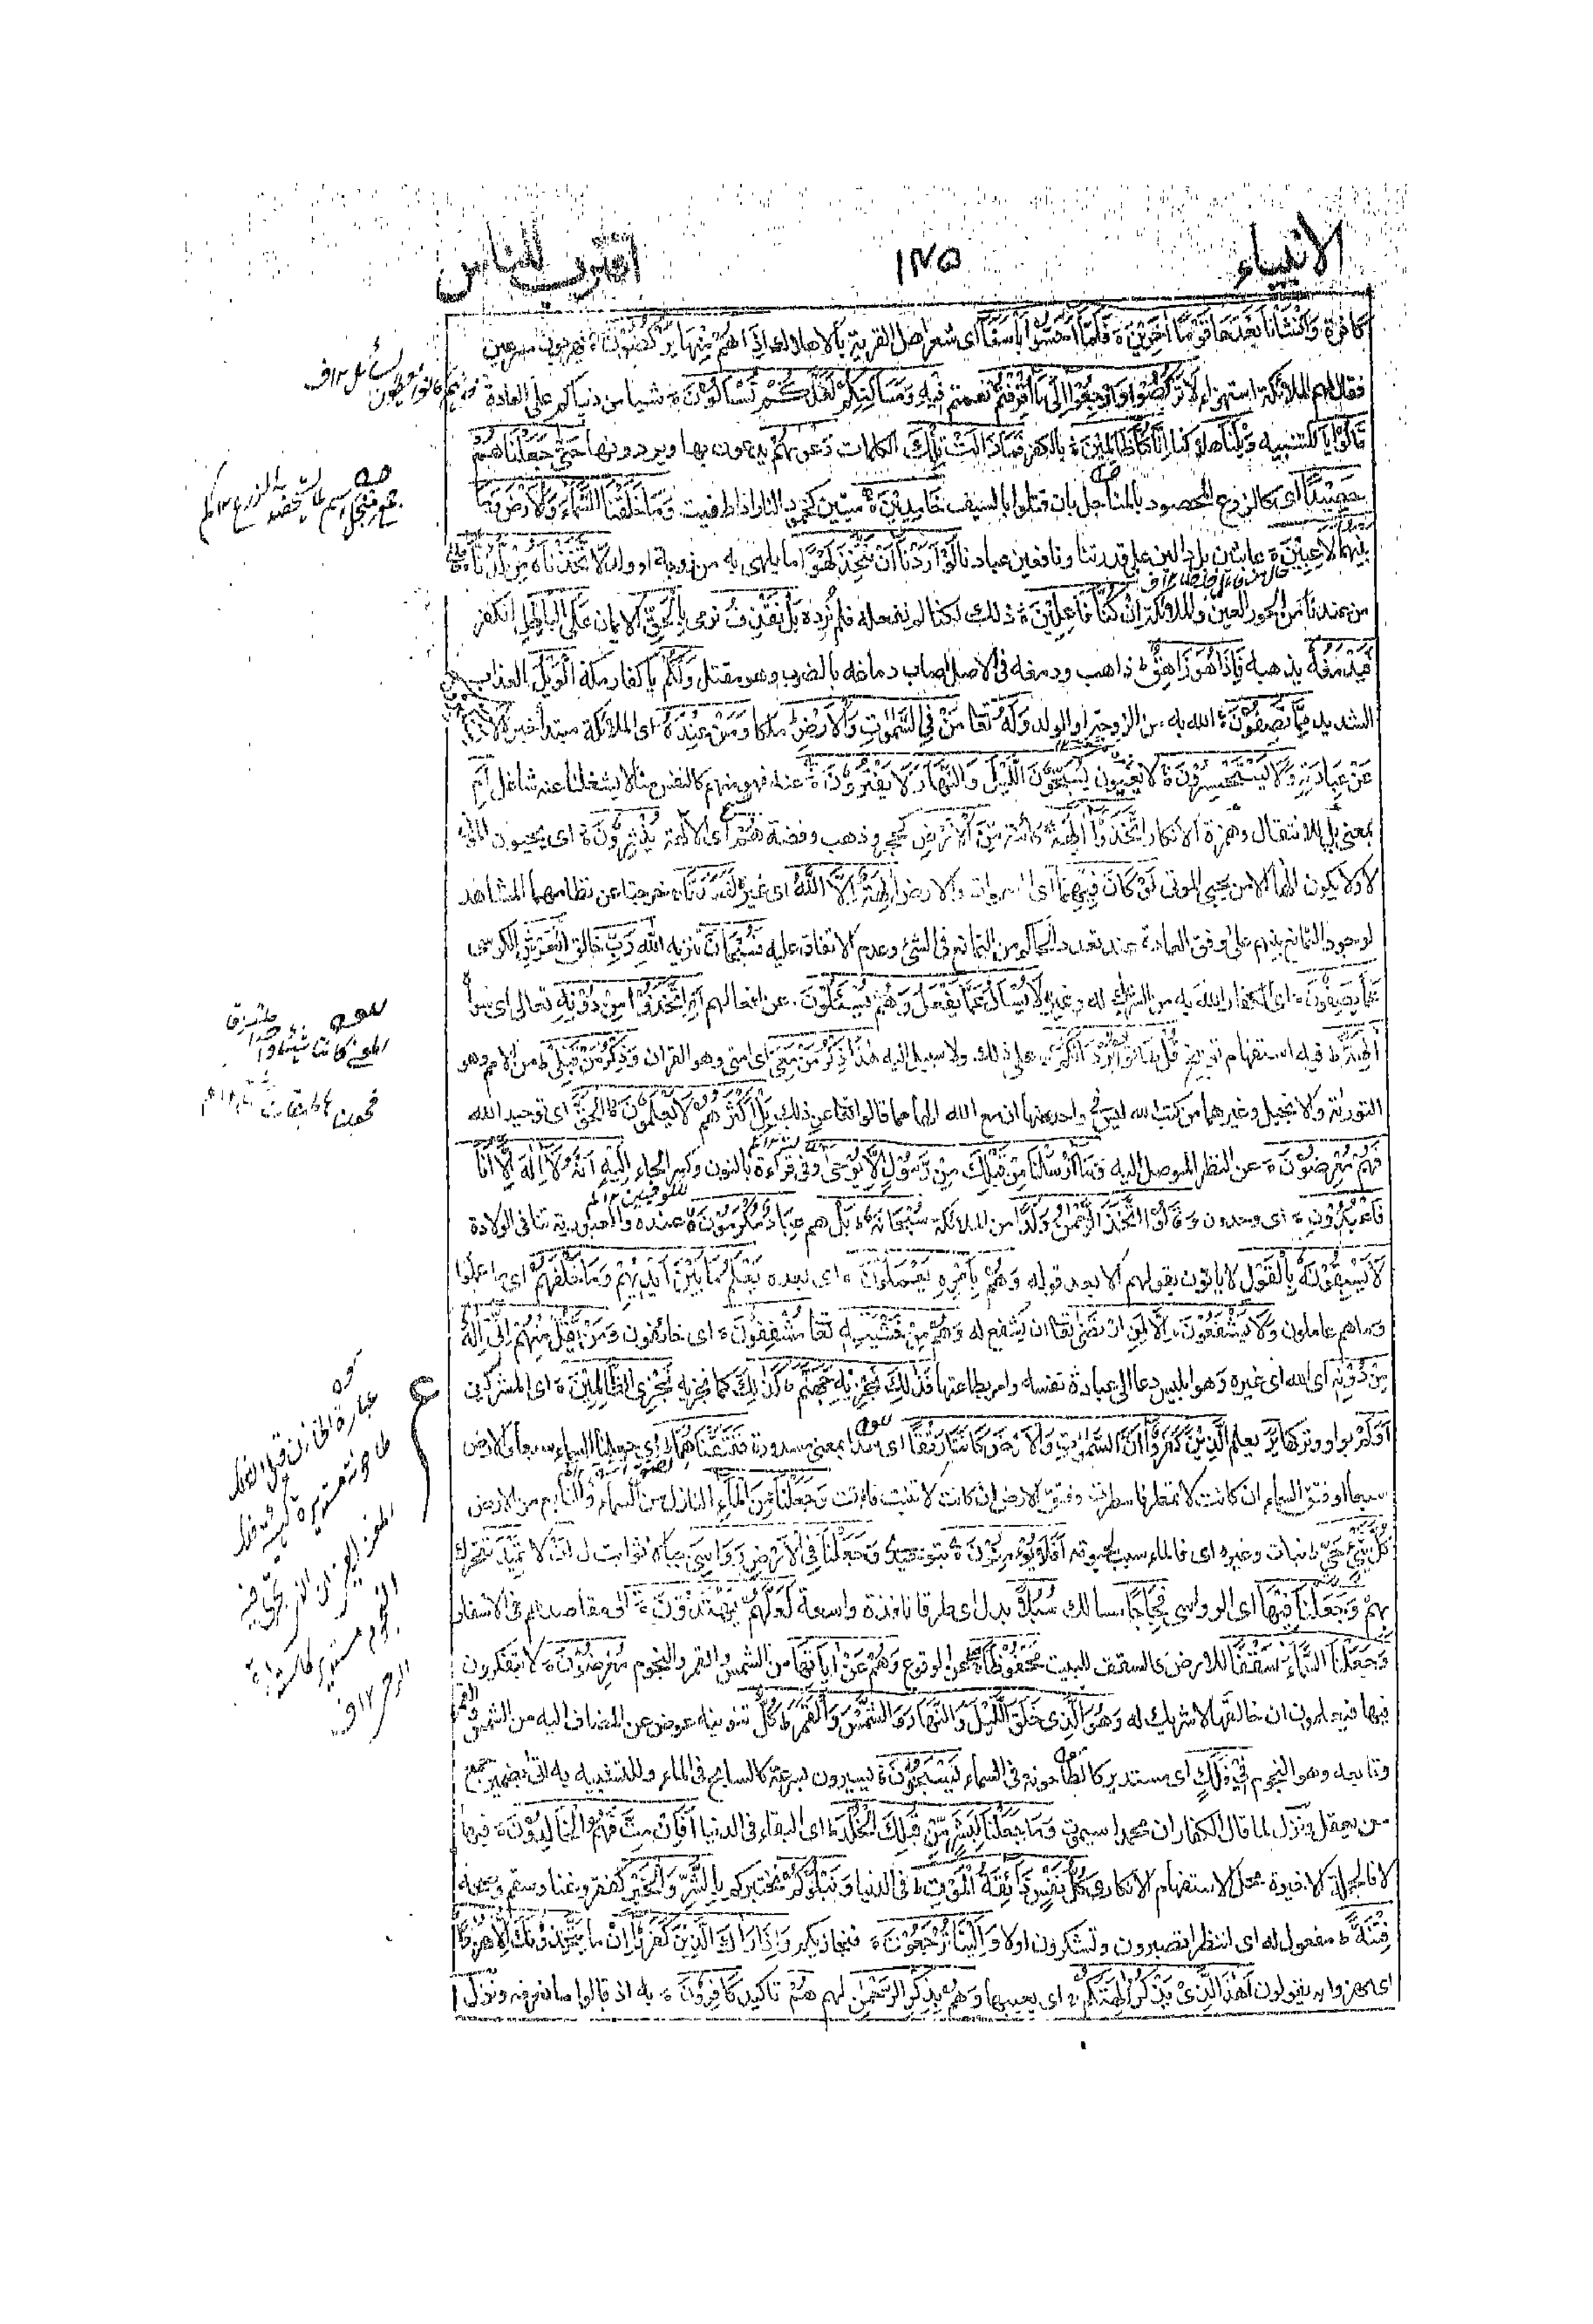 الانبياء
١٢٥
اقترب للناس
كافرة وَاَنْشَأْنَا بَعْدَهَا قَوْمًا اٰخَرِيْنَ ۝ فَلَمَّا اَحَسُّوْا بَأْسَنَا اى شعر اهل القرية بالاهلاك اِذَا هُمْ مِنْهَا يَرْكُضُوْنَ ۝ يهربون مسرعين
فقال لهم الملائكة استهزاء لَا تَرْكُضُوْا وَارْجِعُوْا اِلٰى مَا اُتْرِفْتُمْ نعمتم فِيْهِ وَمَسَاكِنِكُمْ لَعَلَّكُمْ تُسْاَلُوْنَ ۝ شيئا من دنياكم على العادة
قَالُوْا يَا للتنبيه وَيْلَنَا هلاكنا اِنَّا كُنَّا ظَالِمِيْنَ ۝ بالكفر فَمَا زَالَتْ تِلْكَ الكلمات دَعْوٰىهُمْ يدعون بها ويرددونها حَتّٰى جَعَلْنَاهُمْ
حَصِيْدًا اى كالزرع المحصود بالمناجل بان قتلوا بالسيف خَامِدِيْنَ ۝ ميتين كخمود النار اذا طفيت وَمَا خَلَقْنَا السَّمَاءَ وَالْاَرْضَ وَمَا
بَيْنَهُمَا لَاعِبِيْنَ ۝ عابثين بل دالين على قدرتنا ونافعين عبادنا لَوْ اَرَدْنَا اَنْ نَتَّخِذَ لَهْوًا ما يلهى به من زوجة او ولد لَاتَّخَذْنَاهُ مِنْ لَدُنَّا
من عندنا من الحور العين والملائكة اِنْ كُنَّا فَاعِلِيْنَ ۝ ذلك لكنا لم نفعله فلم نرده بَلْ نَقْذِفُ نرمى بِالْحَقِّ الايمان عَلَى الْبَاطِلِ الكفر
فَيَدْمَغُهُ يذهبه فَاِذَا هُوَ زَاهِقٌ ط ذاهب ودمغه فى الاصل اصاب دماغه بالضرب وهو مقتل وَلَكُمْ يا كفار مكة الْوَيْلُ العذاب
الشديد مِمَّا تَصِفُوْنَ ۝ الله به من الزوجة او الولد وَلَهُ تعا مَنْ فِى السَّمٰوٰتِ وَالْاَرْضِ ط ملكا وَمَنْ عِنْدَهُ اى الملائكة مبتدأ خبره لَا
عَنْ عِبَادَتِهِ وَلَا يَسْتَحْسِرُوْنَ ۝ لا يعيون يُسَبِّحُوْنَ اللَّيْلَ وَالنَّهَارَ لَا يَفْتُرُوْنَ ۝ عنه فهو منهم كالنفس منا لا يشغلنا عنه شاغل اَمْ
بمعنى بل للانتقال وهمزة الانكار اتَّخَذُوْا اٰلِهَةً كائنة مِنَ الْاَرْضِ كحجر وذهب وفضة هُمْ اى الالهة يُنْشِرُوْنَ ۝ اى يحيون الموتى
لا ولا يكون الها الا من يحيى الموتى لَوْ كَانَ فِيْهِمَا اى السموات والارض اٰلِهَةٌ اِلَّا اللّٰهُ اى غيره لَفَسَدَتَا خرجتا عن نظامهما المشاهد
لوجود التمانع بينهم على وفق العادة عند تعدد الحاكم من التمانع فى الشئ وعدم الاتفاق عليه فَسُبْحَانَ تنزيه اللّٰهِ رَبِّ خالق الْعَرْشِ الكرسى
عَمَّا يَصِفُوْنَ ۝ اى الكفار الله به من الشريك له وغيره لَا يُسْاَلُ عَمَّا يَفْعَلُ وَهُمْ يُسْئَلُوْنَ ۝ عن افعالهم اَمِ اتَّخَذُوْا مِنْ دُوْنِهِ تعالى اى سواه
اٰلِهَةً ط فيه استفهام توبيخ قُلْ هَاتُوْا بُرْهَانَكُمْ على ذلك ولا سبيل اليه هٰذَا ذِكْرُ مَنْ مَعِىَ اى امتى وهو القران وَذِكْرُ مَنْ قَبْلِىْ ط من الامم وهو
التورٰىة والانجيل وغيرهما من كتب الله ليس فى واحد منها ان مع الله الها مما قالوا تعا عن ذلك بَلْ اَكْثَرُهُمْ لَا يَعْلَمُوْنَ الْحَقَّ اى توحيد الله
فَهُمْ مُعْرِضُوْنَ ۝ عن النظر الموصل اليه وَمَا اَرْسَلْنَا مِنْ قَبْلِكَ مِنْ رَسُوْلٍ اِلَّا يُوْحٰى وفى قراءة بالنون وكسر الحاء اِلَيْهِ اَنَّهُ لَا اِلٰهَ اِلَّا اَنَا
فَاعْبُدُوْنِ ۝ اى وحدون وَقَالُوا اتَّخَذَ الرَّحْمٰنُ وَلَدًا من الملائكة سُبْحَانَهُ ط بَلْ هم عِبَادٌ مُكْرَمُوْنَ ۝ عنده والعبودية تنافى الولادة
لَا يَسْبِقُوْنَهُ بِالْقَوْلِ لا ياتون بقولهم الا بعد قوله وَهُمْ بِاَمْرِهِ يَعْمَلُوْنَ ۝ اى بعده يَعْلَمُ مَا بَيْنَ اَيْدِيْهِمْ وَمَا خَلْفَهُمْ اى ما عملوا
وما هم عاملون وَلَا يَشْفَعُوْنَ اِلَّا لِمَنِ ارْتَضٰى تعا ان يشفع له وَهُمْ مِنْ خَشْيَتِهِ تعا مُشْفِقُوْنَ ۝ اى خائفون وَمَنْ يَقُلْ مِنْهُمْ اِنِّىْ اِلٰهٌ
مِنْ دُوْنِهِ اى الله اى غيره وهو ابليس دعا الى عبادة نفسه وامر بطاعتها فَذٰلِكَ نَجْزِيْهِ جَهَنَّمَ كَذٰلِكَ كما نجزيه نَجْزِى الظَّالِمِيْنَ ۝ اى المشركين
اَوَلَمْ بواو وتركها يَرَ يعلم الَّذِيْنَ كَفَرُوْا اَنَّ السَّمٰوٰتِ وَالْاَرْضَ كَانَتَا رَتْقًا اى سدا بمعنى مسدودة فَفَتَقْنَاهُمَا اى جعلنا السماء سبعا والارض
سبعا او فتق السماء ان كانت لا تمطر فامطرت وفتق الارض ان كانت لا تنبت فانبتت وَجَعَلْنَا مِنَ الْمَاءِ النازل من السماء والنابع من الارض
كُلَّ شَىْءٍ حَىٍّ نبات وغيره اى فالماء سبب لحيوته اَفَلَا يُؤْمِنُوْنَ ۝ بتوحيدى وَجَعَلْنَا فِى الْاَرْضِ رَوَاسِىَ جبالا ثوابت ل اَنْ لا تَمِيْدَ تتحرك
بِهِمْ وَجَعَلْنَا فِيْهَا اى الرواسى فِجَاجًا مسالك سُبُلًا بدل اى طرقا نافذة واسعة لَعَلَّهُمْ يَهْتَدُوْنَ ۝ الى مقاصدهم فى الاسفار
وَجَعَلْنَا السَّمَاءَ سَقْفًا للارض كالسقف للبيت مَحْفُوْظًا عن الوقوع وَهُمْ عَنْ اٰيَاتِهَا من الشمس والقمر والنجوم مُعْرِضُوْنَ ۝ لا يتفكرون
فيها فيعلمون ان خالقها لا شريك له وَهُوَ الَّذِىْ خَلَقَ اللَّيْلَ وَالنَّهَارَ وَالشَّمْسَ وَالْقَمَرَ ط كُلٌّ تنوينه عوض عن المضاف اليه من الشمس والقمر
وتابعه وهو النجوم فِىْ فَلَكٍ اى مستدير كالطاحونة فى السماء يَسْبَحُوْنَ ۝ يسيرون بسرعة كالسابح فى الماء وللتشبيه به اتى بضمير جمع
من يعقل ونزل لما قال الكفار ان محمدا سيموت وَمَا جَعَلْنَا لِبَشَرٍ مِنْ قَبْلِكَ الْخُلْدَ ط اى البقاء فى الدنيا اَفَاِنْ مِتَّ فَهُمُ الْخَالِدُوْنَ ۝ فيها
لا فالجملة الاخيرة محل الاستفهام الانكارى كُلُّ نَفْسٍ ذَائِقَةُ الْمَوْتِ ط فى الدنيا وَنَبْلُوْكُمْ نختبركم بِالشَّرِّ وَالْخَيْرِ كفقر وغنا وسقم وصحة
فِتْنَةً ط مفعول له اى لننظر اتصبرون وتشكرون او لا وَاِلَيْنَا تُرْجَعُوْنَ ۝ فنجازيكم وَاِذَا رَاٰكَ الَّذِيْنَ كَفَرُوْا اِنْ ما يَتَّخِذُوْنَكَ اِلَّا هُزُوًا
اى مهزوا به يقولون اَهٰذَا الَّذِىْ يَذْكُرُ اٰلِهَتَكُمْ اى يعيبها وَهُمْ بِذِكْرِ الرَّحْمٰنِ لهم هُمْ تاكيد كَافِرُوْنَ ۝ به اذ قالوا ما نعرفه ونزل
ع